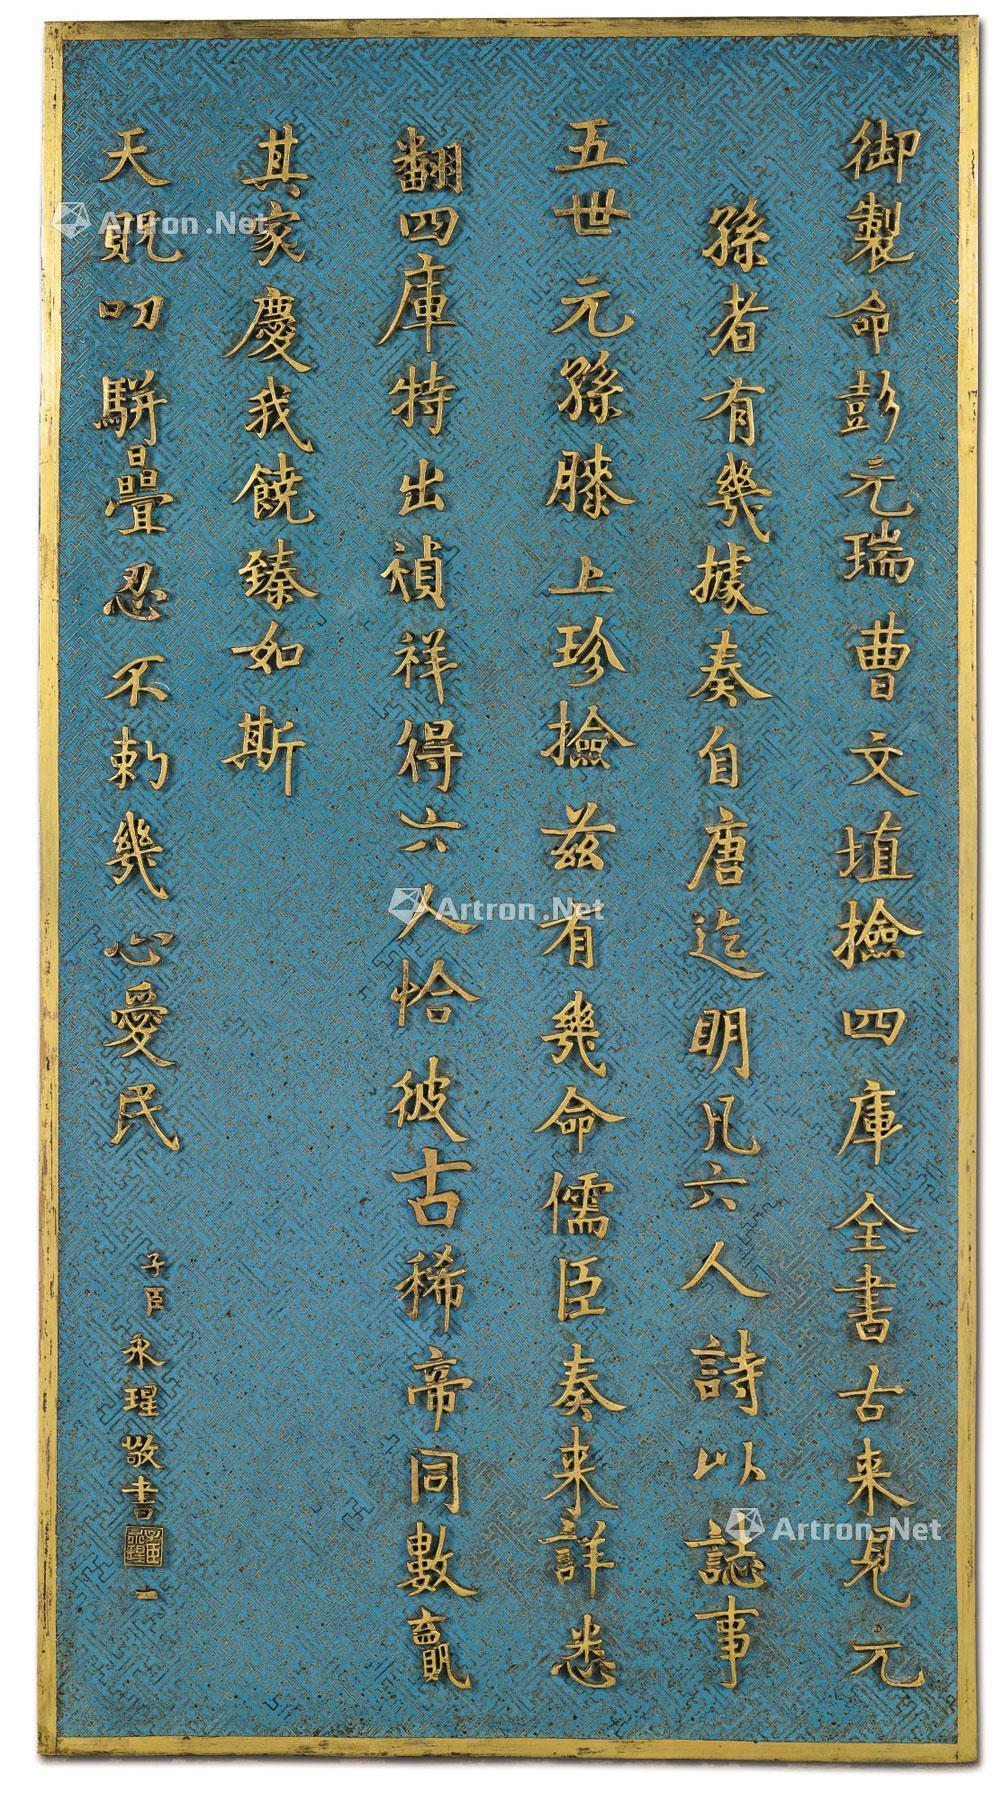 御製命彭元瑞曹文埴撿四庫全書古来見元
孫者有幾據奏自唐迄明凡六人詩以誌事
五世元孫膝上珍撿兹有幾命儒臣奏来詳悉
翻四庫特出禎祥得六人恰彼古稀帝同數贏
其家慶我饒臻如斯
天貺叨駢疊忍不勅幾心愛民
子臣永瑆敬書
Artron.Net
Artron.Net
Artron.Net